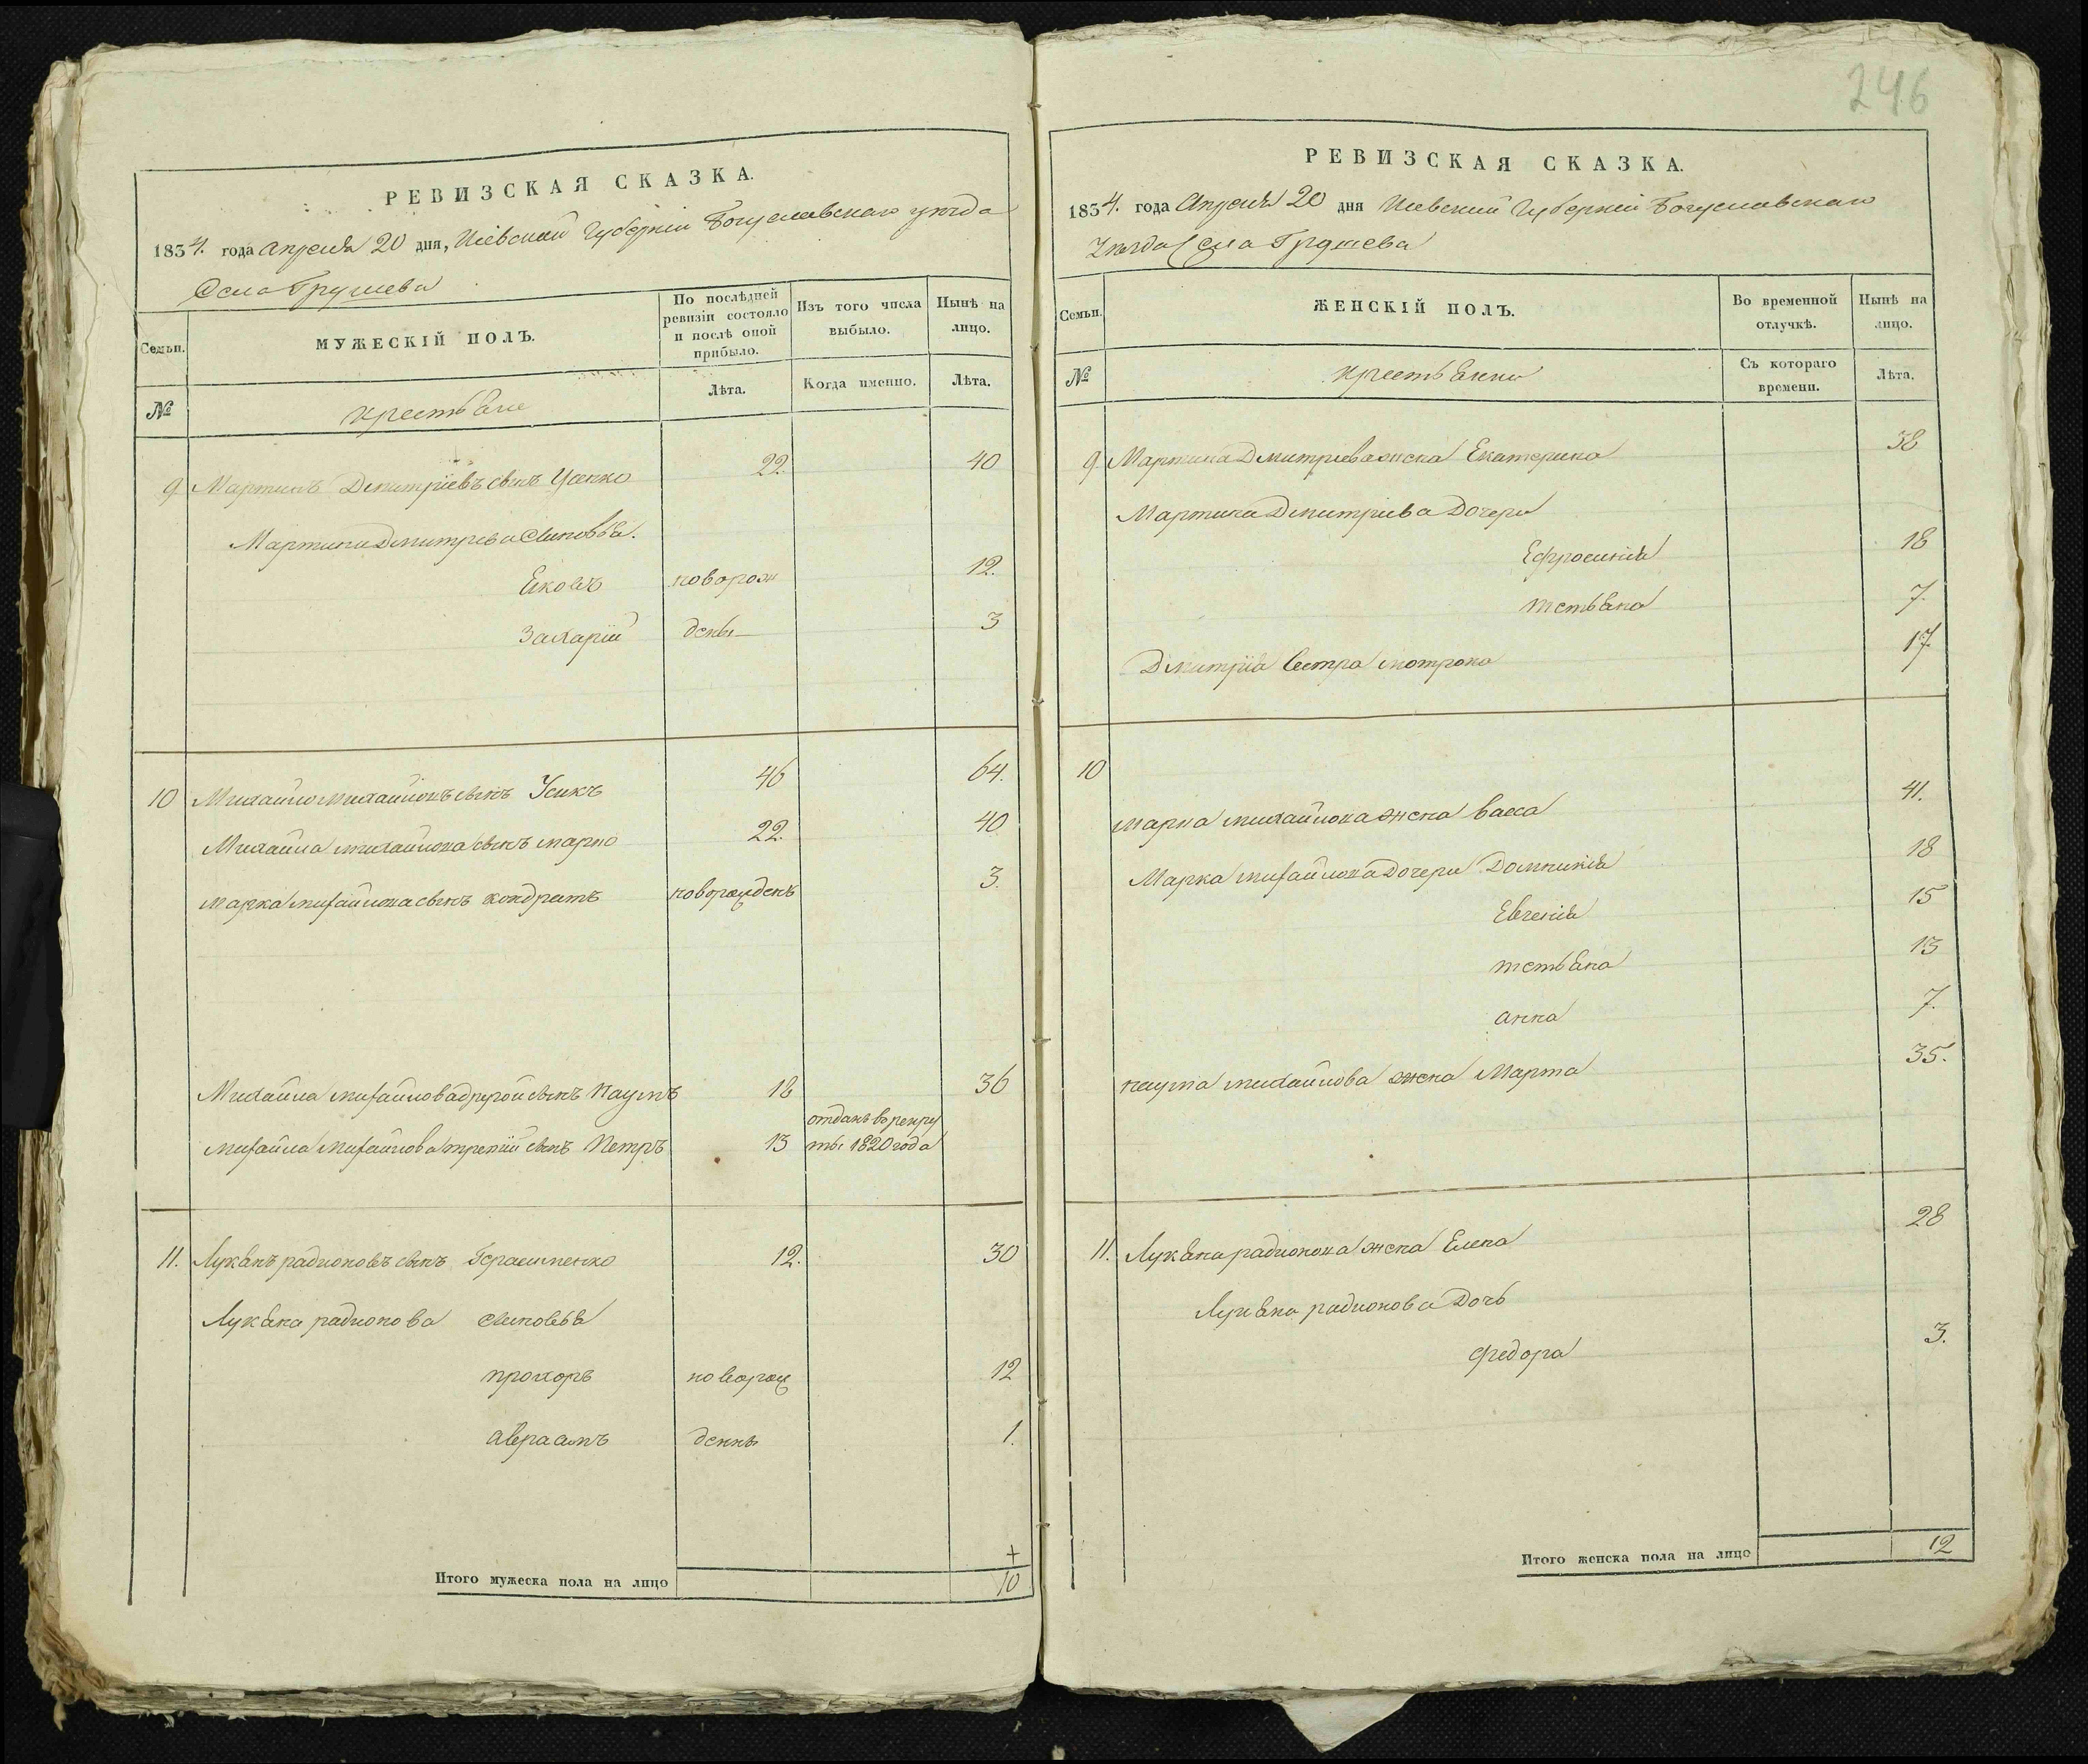 РЕВИЗСКАЯ СКАЗКА.
1834. года Апреля 20 дня, Кіевской Губерніи Богуславскаго уѣзда
Села Грушева
Семьи.
МУЖЕСКІЙ ПОЛЪ.
По послѣдней ревизіи состояло и послѣ оной прибыло.
Изъ того числа выбыло.
Нынѣ на лицо.
№
крестьяне
Лѣта.
Когда именно.
Лѣта.
9 Мартинъ Дмитріевъ сынъ Усенко 22. 40
Мартина Дмитріева сыновья.
Яковъ новорож 12.
Захарій дены 3
10 Михайло Михайловъ сынъ Усикъ 46 64.
Михайла михайлова сынъ марко 22. 40
марка михайлова сынъ кондратъ новорожденъ 3.
Михайла михайлова другой сынъ Наумъ 18 36
отданъ в рекру
михайла михайлова третій сынъ Петръ 13 ты 1820 года
11. Лукьянъ радионовъ сынъ Герасименко 12. 30
Лукьяна радионова сыновья
прохоръ новорож 12
авраамъ денны 1.
+
Итого мужеска пола на лицо 10
246
РЕВИЗСКАЯ СКАЗКА.
1834. года Апреля 20 дня Кіевской Губерніи Богуславскаго
Уѣзда Села Грушева
Семьи.
ЖЕНСКІЙ ПОЛЪ.
Во временной отлучкѣ.
Нынѣ на лицо.
№
крестьянки
Съ котораго времени.
Лѣта.
9 Мартина Дмитріева жена Екатерина 38
Мартина Дмитріева Дочери
Ефросинія 18
тетьяна 7.
Дмитрія Сестра мотрона 17.
10
марка михайлова жена васса 41.
Марка михайлова Дочери Домникія 18
Евгенія 15
тетьяна 13
анна 7.
наума михайлова жена Марта 35.
11. Лукьяна радионова жена Елена 28
Лукьяна радионова Дочь
федора 3.
Итого женска пола на лицо 12